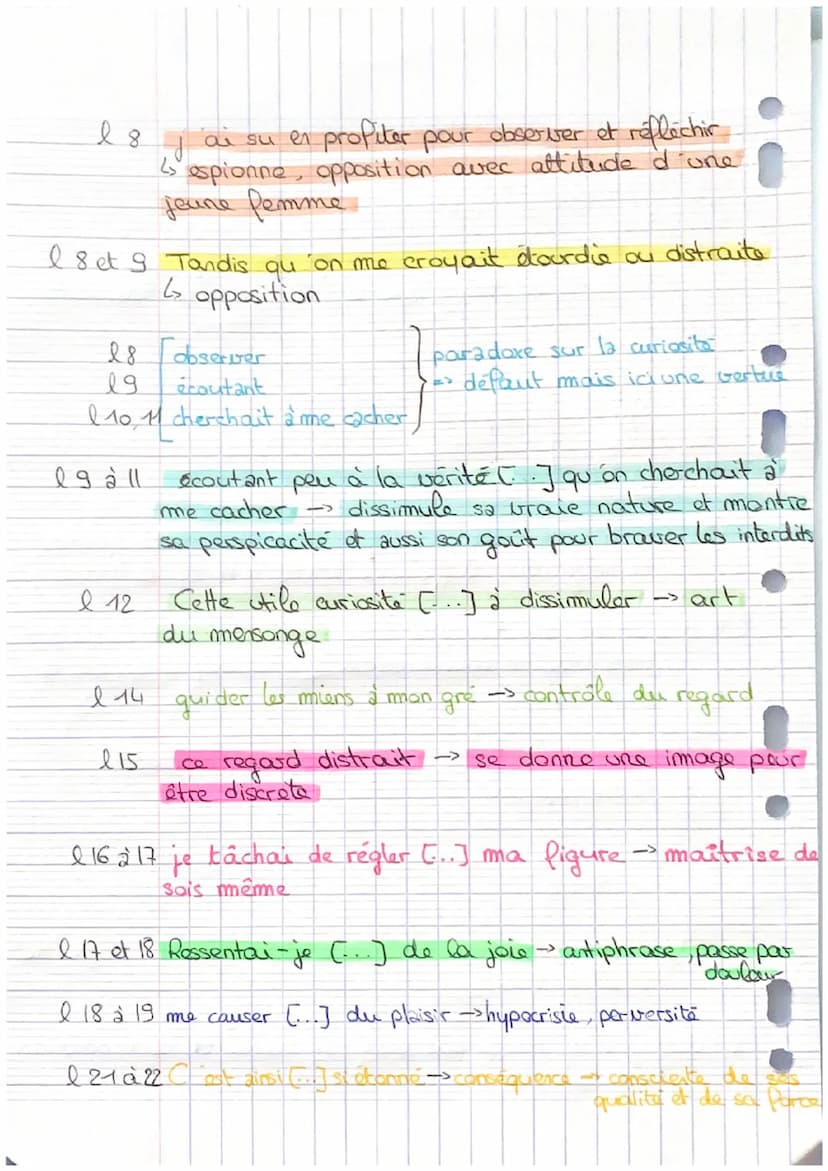 l 8 j'ai su en profiter pour observer et réfléchir
↳ espionne, opposition avec attitude d'une
jeune femme
l 8 et 9 Tandis qu'on me croyait étourdie ou distraite
↳ opposition
l8 observer
l9 écoutant
l 10, 11 cherchait à me cacher
paradoxe sur la curiosité
=> défaut mais ici une vertue
l 9 à 11 écoutant peu à la vérité [...] qu'on cherchait à
me cacher -> dissimule sa vraie nature et montre
sa perspicacité et aussi son goût pour braver les interdits
l 12 Cette utile curiosité [...] à dissimuler -> art
du mensonge
l 14 guider les miens à mon gré -> contrôle du regard
l 15 ce regard distrait -> se donne une image pour
être discrète
l 16 à 17 je tâchai de régler [...] ma figure -> maîtrise de
sois même
l 17 et 18 Ressentai-je [...] de la joie -> antiphrase, passe par
douleur
l 18 à 19 me causer [...] du plaisir -> hypocrisie, perversité
l 21 à 22 C'est ainsi [...] si étonné -> conséquence -> consciente de ses
qualité et de sa force